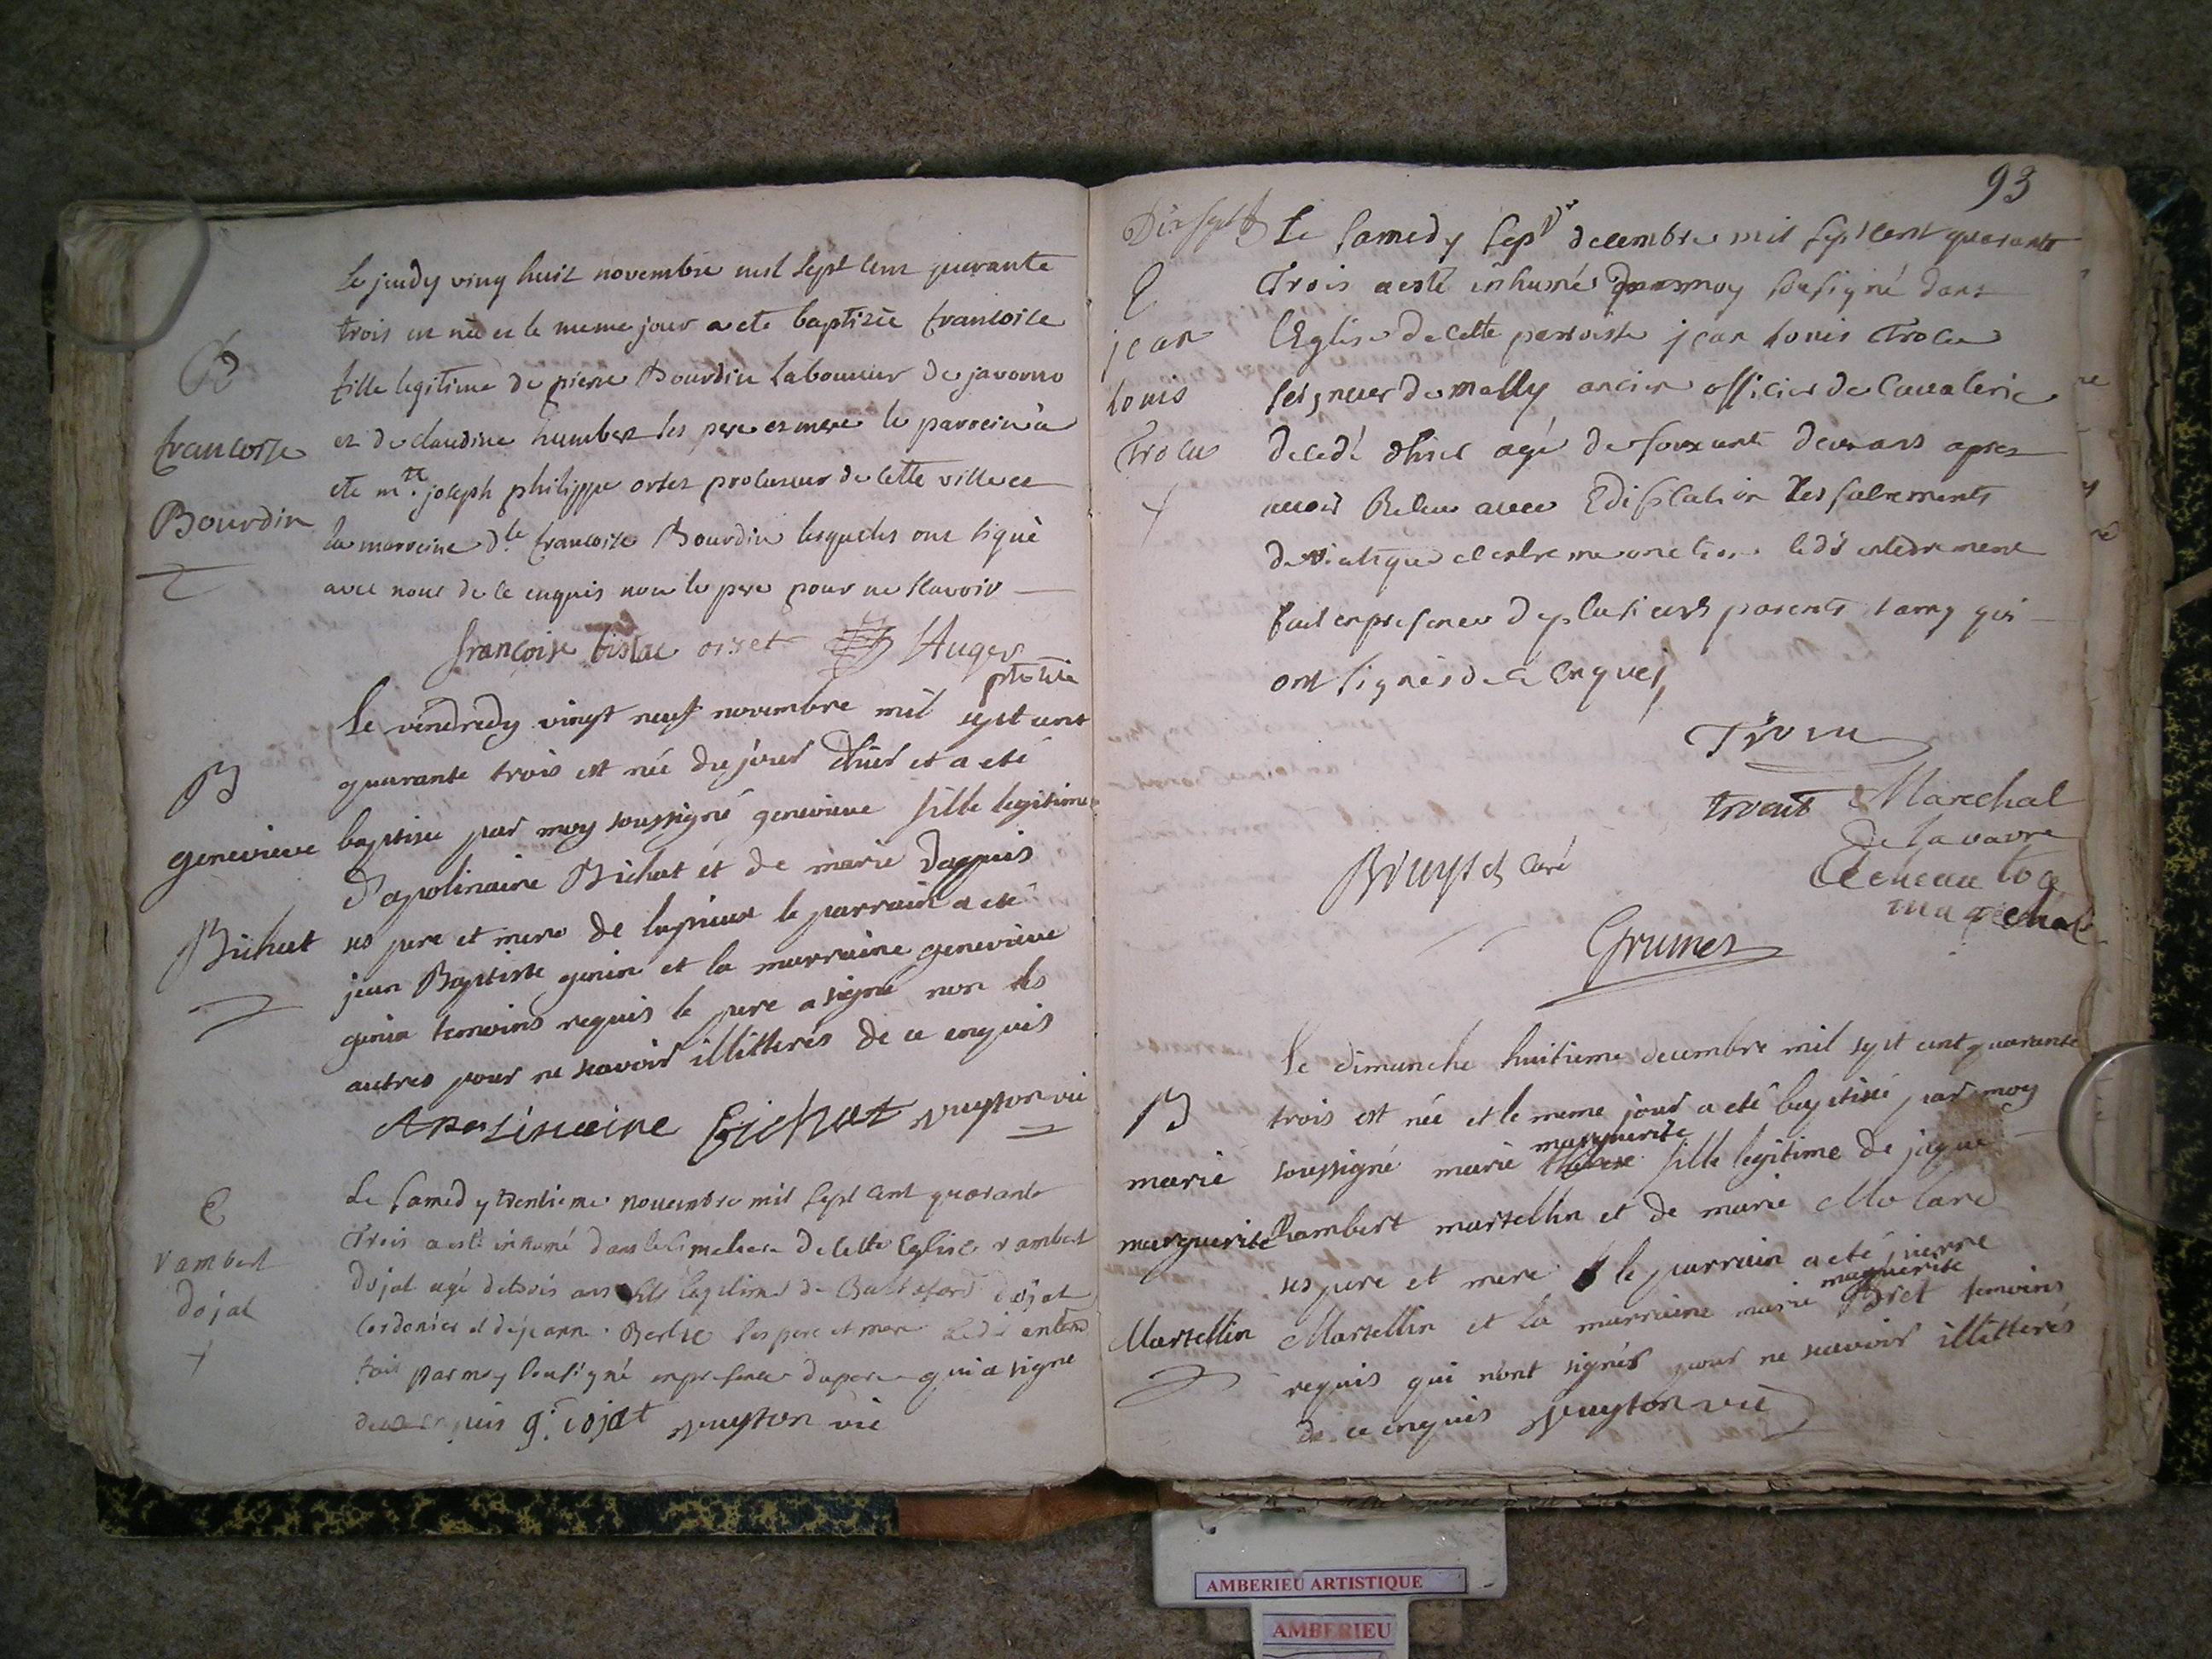 B
francoise
Bourdin
Le jeudy ving huit novembre mil sept cent quarante
trois est née et le meme jour a ete baptisée francoise
fille legitime de pierre Bourdin laboureur de javorno
et de claudine humbert ses pere et mere le parrein à
ete mtre joseph philippe orset procureur de cette ville et
la marreine dle francoise Bourdin lesquels ont signé
avec nous de ce enquis non le pere pour ne scavoir
françoise orset Auger
B
genevieve
Bichat
Le vendredy vingt neuf novembre mil sept cent
quarante trois est née du jour d'hier et a eté
baptisee par moy soussigné genevieve fille legitime
d'apolinaire Bichat et de marie dappuis
ses pere et mere de le parrain a eté
jean Baptiste genin et la marraine genevieve
genin temoins requis le pere a signé non les
autres pour ne scavoir illitterés de ce enquis
Apolinaire Bichat vuyton vic
E
rambert
dojat
Le Samedy trentieme novembre mil sept cent quarante
Trois a esté inhumé dans le Cimetiere de cette Eglise rambert
dojat agé de trois ans fils legitime de Baltesard dojat
Cordonier et de jeanne ses pere et mere ledit enterre
fait par moy sousigné en presence du pere qui a signé
enquis g. dojat vuyton vic
93
Dix sept
E
jean
Louis
Trocu
Le Samedy sept decembre mil sept cent quarante
Trois a esté inhumé par moy sousigné dans
l'Eglise de cette parroisse jean Louis Trocu
seigneur de mally ancien officier de Cavalerie
decedé d'hier agé de soixante deux ans apres
avoir Receu avec Edification les sacrements
de viatique et extreme onction ledit enterrement
fait en presence de plusieurs parents et amy qui
ont signés de ce enquej
Trocu
trocut Marechal
de la vavre
marechal
Bruyset curé
Grumet
B
marie
marguerite
Martellin
Le dimanche huitieme decembre mil sept cent quarante
trois est née et le meme jour a eté baptisée par moy
marguerite
soussigné marie fille legitime de jaque
Rambert martellin et de marie Molard
ses pere et mere le parrain a eté pierre
marguerite
Martellin et la marraine marie Bret temoins
requis qui n'ont signés pour ne scavoir illitterés
de ce enquis vuyton vic
AMBERIEU ARTISTIQUE
AMBERIEU